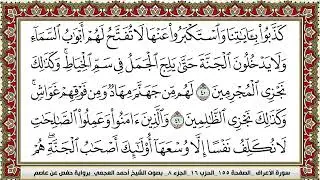 كَذَّبُوا۟ بِـَٔايَـٰتِنَا وَٱسْتَكْبَرُوا۟ عَنْهَا لَا تُفَتَّحُ لَهُمْ أَبْوَٰبُ ٱلسَّمَآءِ
وَلَا يَدْخُلُونَ ٱلْجَنَّةَ حَتَّىٰ يَلِجَ ٱلْجَمَلُ فِى سَمِّ ٱلْخِيَاطِ ۚ وَكَذَٰلِكَ
نَجْزِى ٱلْمُجْرِمِينَ ٤٠ لَهُم مِّن جَهَنَّمَ مِهَادٌ وَمِن فَوْقِهِمْ غَوَاشٍ ۚ
وَكَذَٰلِكَ نَجْزِى ٱلظَّـٰلِمِينَ ٤١ وَٱلَّذِينَ ءَامَنُوا۟ وَعَمِلُوا۟ ٱلصَّـٰلِحَـٰتِ
لَا نُكَلِّفُ نَفْسًا إِلَّا وُسْعَهَآ أُو۟لَـٰٓئِكَ أَصْحَـٰبُ ٱلْجَنَّةِ ۖ هُمْ
سورة الأعراف . الصفحة ١٥٥ . الحزب ١٦ . الجزء ٨ . بصوت الشيخ أحمد العجمي . برواية حفص عن عاصم